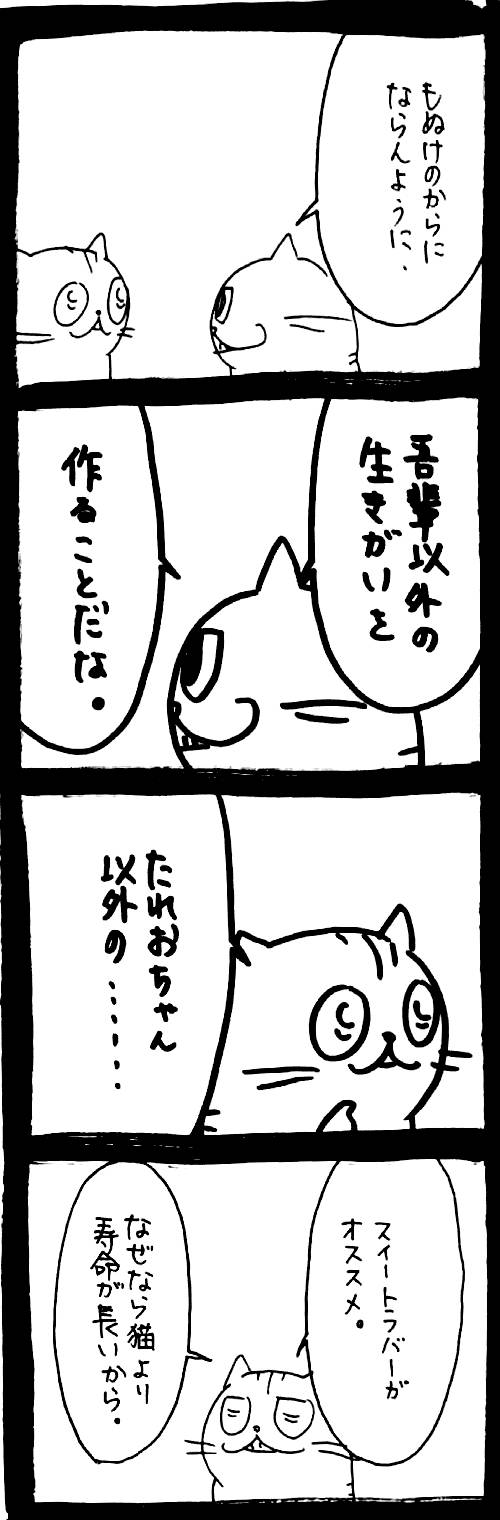 もぬけのからに
ならんように、
吾輩以外の
生きがいを
作ることだな。
たれおちゃん
以外の……
スイートラバーが
オススメ。
なぜなら猫より
寿命が長いから。